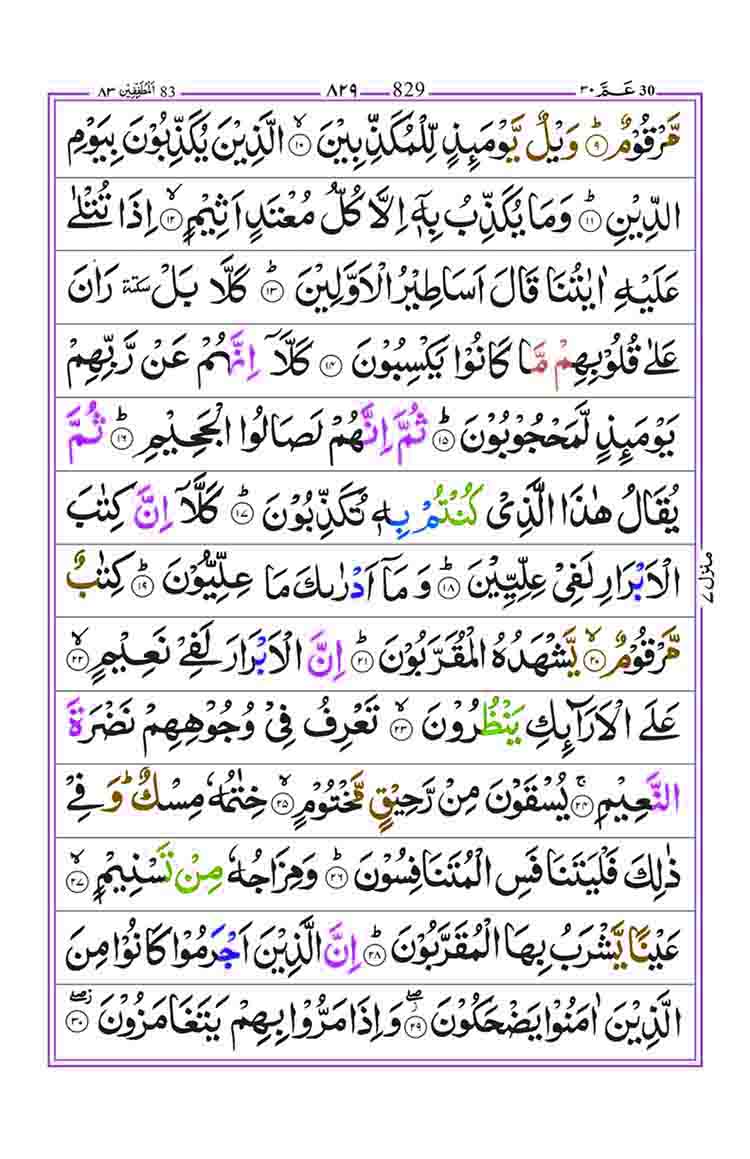 ٨٣ اَلْمُطَفِّفِيْن 83 ٨٢٩ 829 ٣٠ عَـمَّ 30
مَّرْقُوْمٌ ؕ﴿۹﴾ وَيْلٌ يَّوْمَئِذٍ لِّلْمُكَذِّبِيْنَ ۙ﴿۱۰﴾ الَّذِيْنَ يُكَذِّبُوْنَ بِيَوْمِ
الدِّيْنِ ؕ﴿۱۱﴾ وَمَا يُكَذِّبُ بِهٖۤ اِلَّا كُلُّ مُعْتَدٍ اَثِيْمٍ ۙ﴿۱۲﴾ اِذَا تُتْلٰى
عَلَيْهِ اٰيٰتُنَا قَالَ اَسَاطِيْرُ الْاَوَّلِيْنَ ؕ﴿۱۳﴾ كَلَّا بَلْ سكتة رَانَ
عَلٰى قُلُوْبِهِمْ مَّا كَانُوْا يَكْسِبُوْنَ ﴿۱۴﴾ كَلَّاۤ اِنَّهُمْ عَنْ رَّبِّهِمْ
يَوْمَئِذٍ لَّمَحْجُوْبُوْنَ ؕ﴿۱۵﴾ ثُمَّ اِنَّهُمْ لَصَالُوا الْجَحِيْمِ ؕ﴿۱۶﴾ ثُمَّ
يُقَالُ هٰذَا الَّذِىْ كُنْتُمْ بِهٖ تُكَذِّبُوْنَ ؕ﴿۱۷﴾ كَلَّاۤ اِنَّ كِتٰبَ
الْاَبْرَارِ لَفِىْ عِلِّيِّيْنَ ؕ﴿۱۸﴾ وَمَاۤ اَدْرٰٮكَ مَا عِلِّيُّوْنَ ؕ﴿۱۹﴾ كِتٰبٌ
مَّرْقُوْمٌ ۙ﴿۲۰﴾ يَّشْهَدُهُ الْمُقَرَّبُوْنَ ؕ﴿۲۱﴾ اِنَّ الْاَبْرَارَ لَفِىْ نَعِيْمٍ ۙ﴿۲۲﴾
عَلَى الْاَرَآئِكِ يَنْظُرُوْنَ ۙ﴿۲۳﴾ تَعْرِفُ فِىْ وُجُوْهِهِمْ نَضْرَةَ
النَّعِيْمِ ۚ﴿۲۴﴾ يُسْقَوْنَ مِنْ رَّحِيْقٍ مَّخْتُوْمٍ ۙ﴿۲۵﴾ خِتٰمُهٗ مِسْكٌ ؕ وَفِىْ
ذٰلِكَ فَلْيَتَنَافَسِ الْمُتَنَافِسُوْنَ ؕ﴿۲۶﴾ وَمِزَاجُهٗ مِنْ تَسْنِيْمٍ ۙ﴿۲۷﴾
عَيْنًا يَّشْرَبُ بِهَا الْمُقَرَّبُوْنَ ؕ﴿۲۸﴾ اِنَّ الَّذِيْنَ اَجْرَمُوْا كَانُوْا مِنَ
الَّذِيْنَ اٰمَنُوْا يَضْحَكُوْنَ ۖ﴿۲۹﴾ وَاِذَا مَرُّوْا بِهِمْ يَتَغَامَزُوْنَ ۖ﴿۳۰﴾
منزل ٧